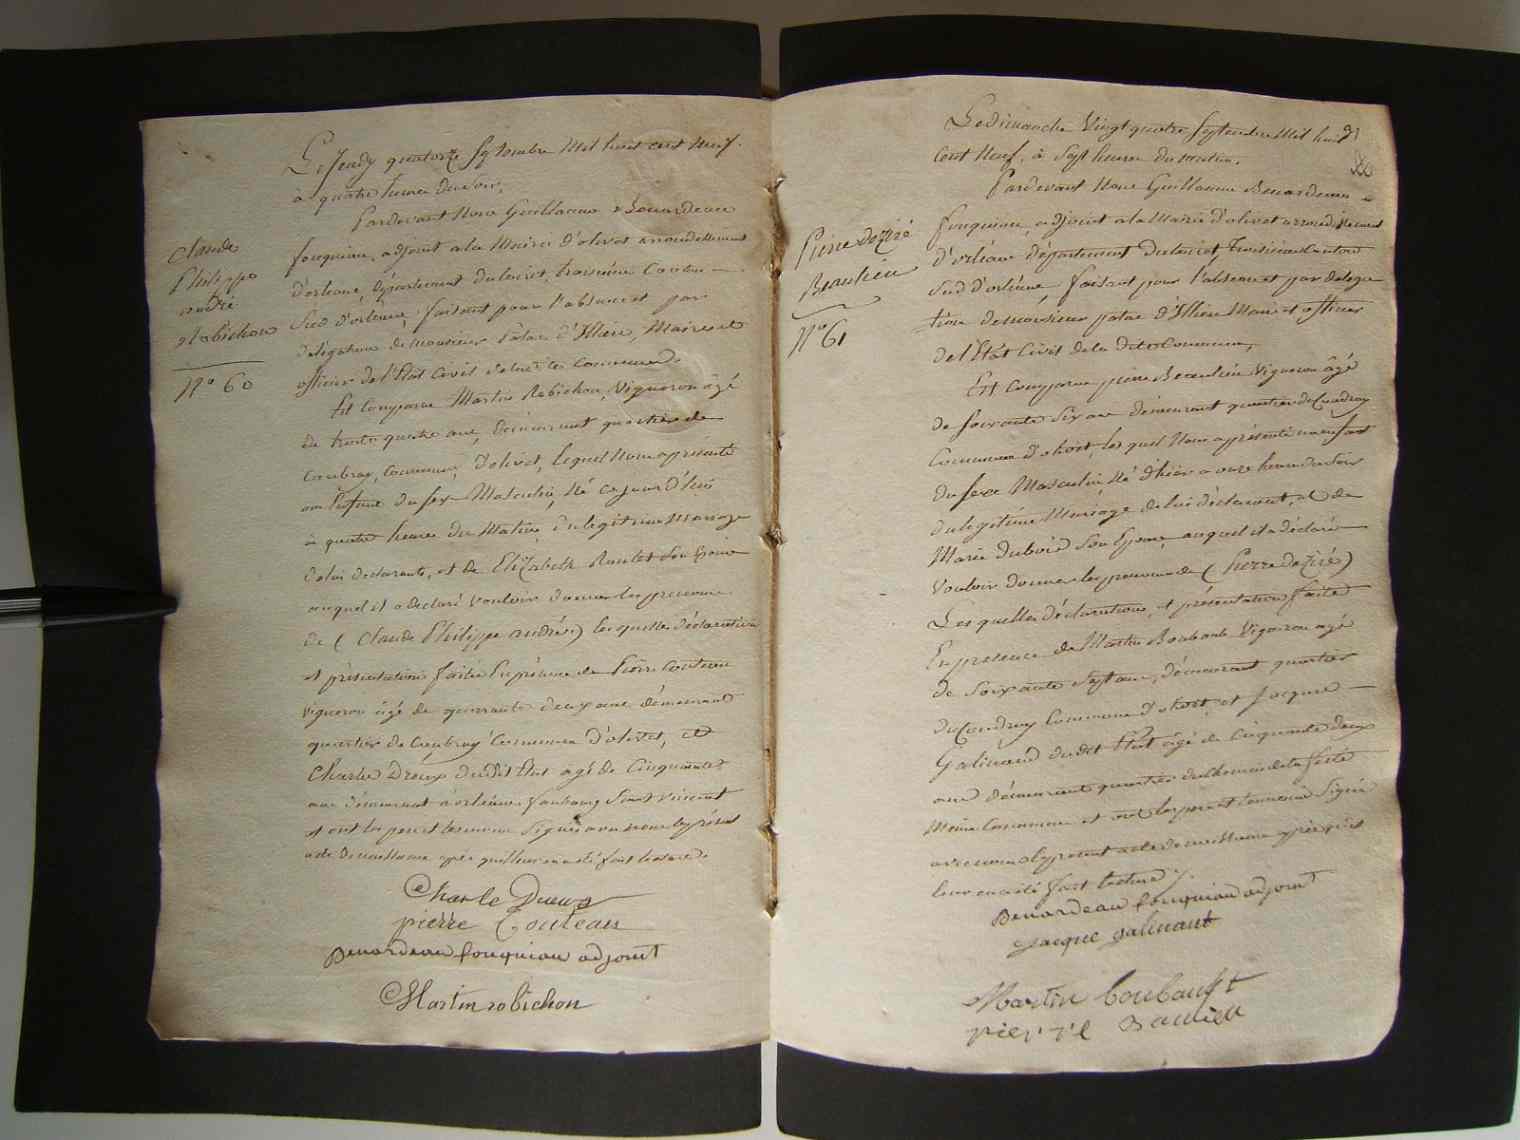 Claude
Philippe
andré
Robichon
N° 60
Le Jeudy quatorze Septembre Mil huit cent Neuf.
à quatre heures du soir,
Pardevant Nous Guillaume Benardeau
fouquiau, adjoint a la Mairie d'olivet arrondissement
d'orleans, Département du loiret, troisieme Canton
Sud d'orleans, faisant pour l'absence et par
délégation de monsieur d'Illiers, Maire et
officier de l'Etat Civil de la dite Commune
Est Comparu Martin Robichon, Vigneron âgé
de trente quatre ans, demeurant quartier de
Coubray, Commune d'olivet, lequel Nous a présenté
un Enfant du sexe Masculin, Né ce jourd'hui
à quatre heures du Matin, du legitime Mariage
de lui declarant, et de Elizabeth Roulet Son Epouse
auquel il a declaré Vouloir donner les prenoms
de (Claude Philippe andré) lesquelles déclaration
et présentation faites En présence de Pierre Couteau
vigneron âgé de quarante deux ans demeurant
quartier de Coubray Commune d'olivet, et
Charles Dreux dudit Etat agé de Cinquante
ans demeurant à orléans faubourg Saint Vincent
et ont les pere et temoins Signés avec nous le présent
acte de naissance après que lecture en a été fait
Charle Dreux
pierre Couteau
Benardeau fouquiau adjoint
Martin robichon
Pierre dezirré
Beaulieu
N° 61
91
Le Dimanche Vingt quatre Septembre Mil huit
Cent Neuf, à Sept heures du matin.
Pardevant Nous Guillaume Benardeau
fouquiau, adjoint a la Mairie d'olivet arrondissement
d'orléans département du loiret, Troisieme Canton
Sud d'orléans, faisant pour l'absence et par deléga
tion de monsieur d'Illiers Maire et officier
de l'Etat Civil de la dite Commune,
Est Comparu pierre Beaulieu Vigneron âgé
de soixante Six ans demeurant quartier du Coudray
Commune d'olivet lequel Nous a présenté un enfant
du sexe Masculin Né d'hier a onze heures du soir
du legitime Mariage de lui déclarant, et de
Marie dubois Son Epouse, auquel il a déclaré
Vouloir donner les prenoms de (Pierre deziré)
Lesquelles déclaration, et présentation faites
En présence de Martin Boubault Vigneron agé
de soixante Sept ans, démeurant quartier
du Coudray Commune d'olivet, et Jacques
Galinand dudit Etat âgé de Cinquante deux
ans démeurant quartier du
Même Commune et ont les pere et temoins Signés
avec nous le present acte de naissance après qu'il
leur en a été fait lecture
Benardeau fouquiau adjoint
Jacque galinant
Martin boubault